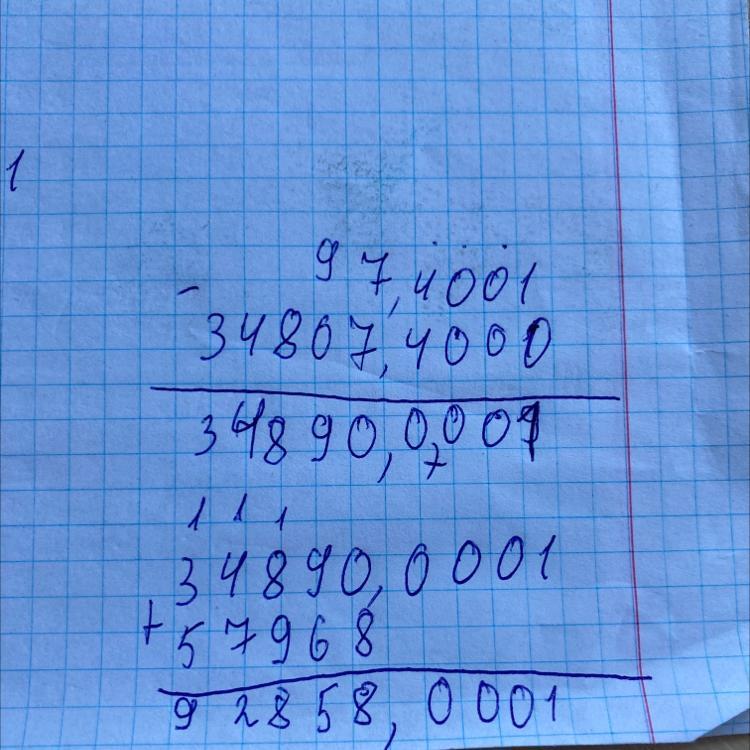 1
97,4001
-
34807,4000
34890,0001
1 1 1
34890,0001
+
57968
92858,0001